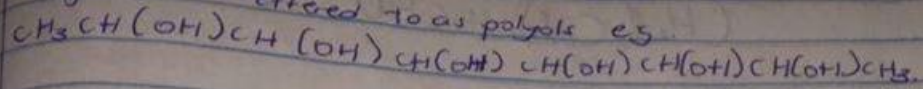 to as polyols eg
CH3CH(OH)CH(OH)CH(OH)CH(OH)CH(OH)CH(OH)CH3.